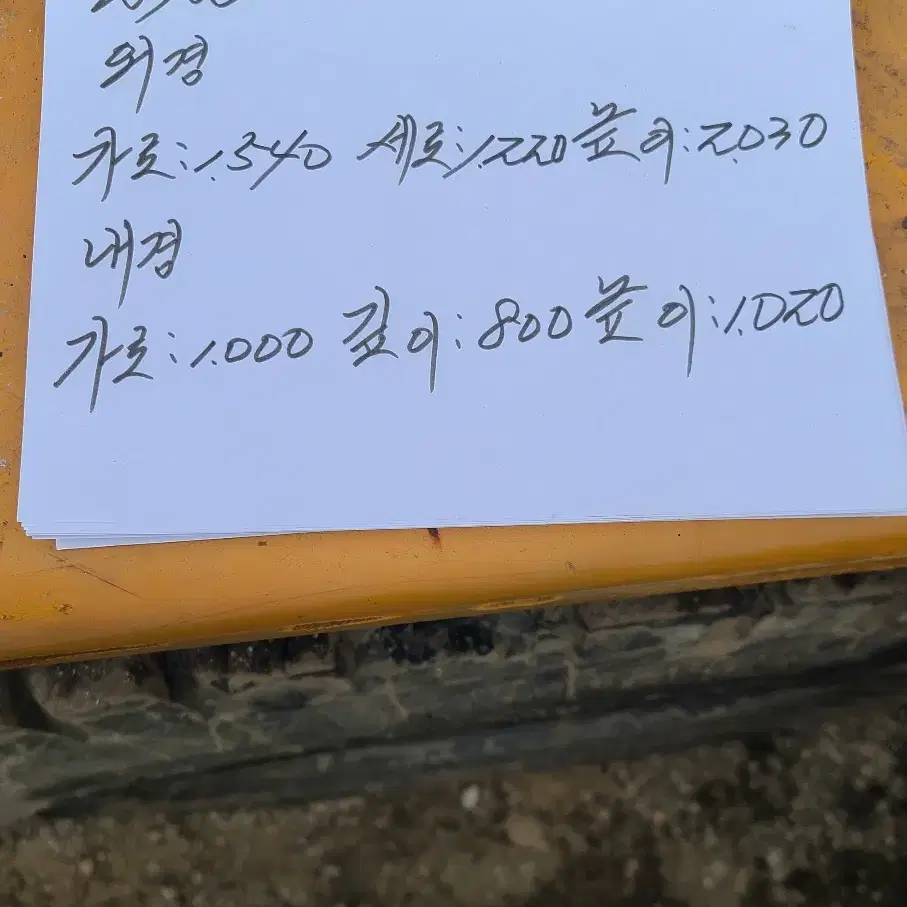 외경
가로:1.540 세로:1.220 높이:2.030
내경
가로:1.000 깊이:800 높이:1.020